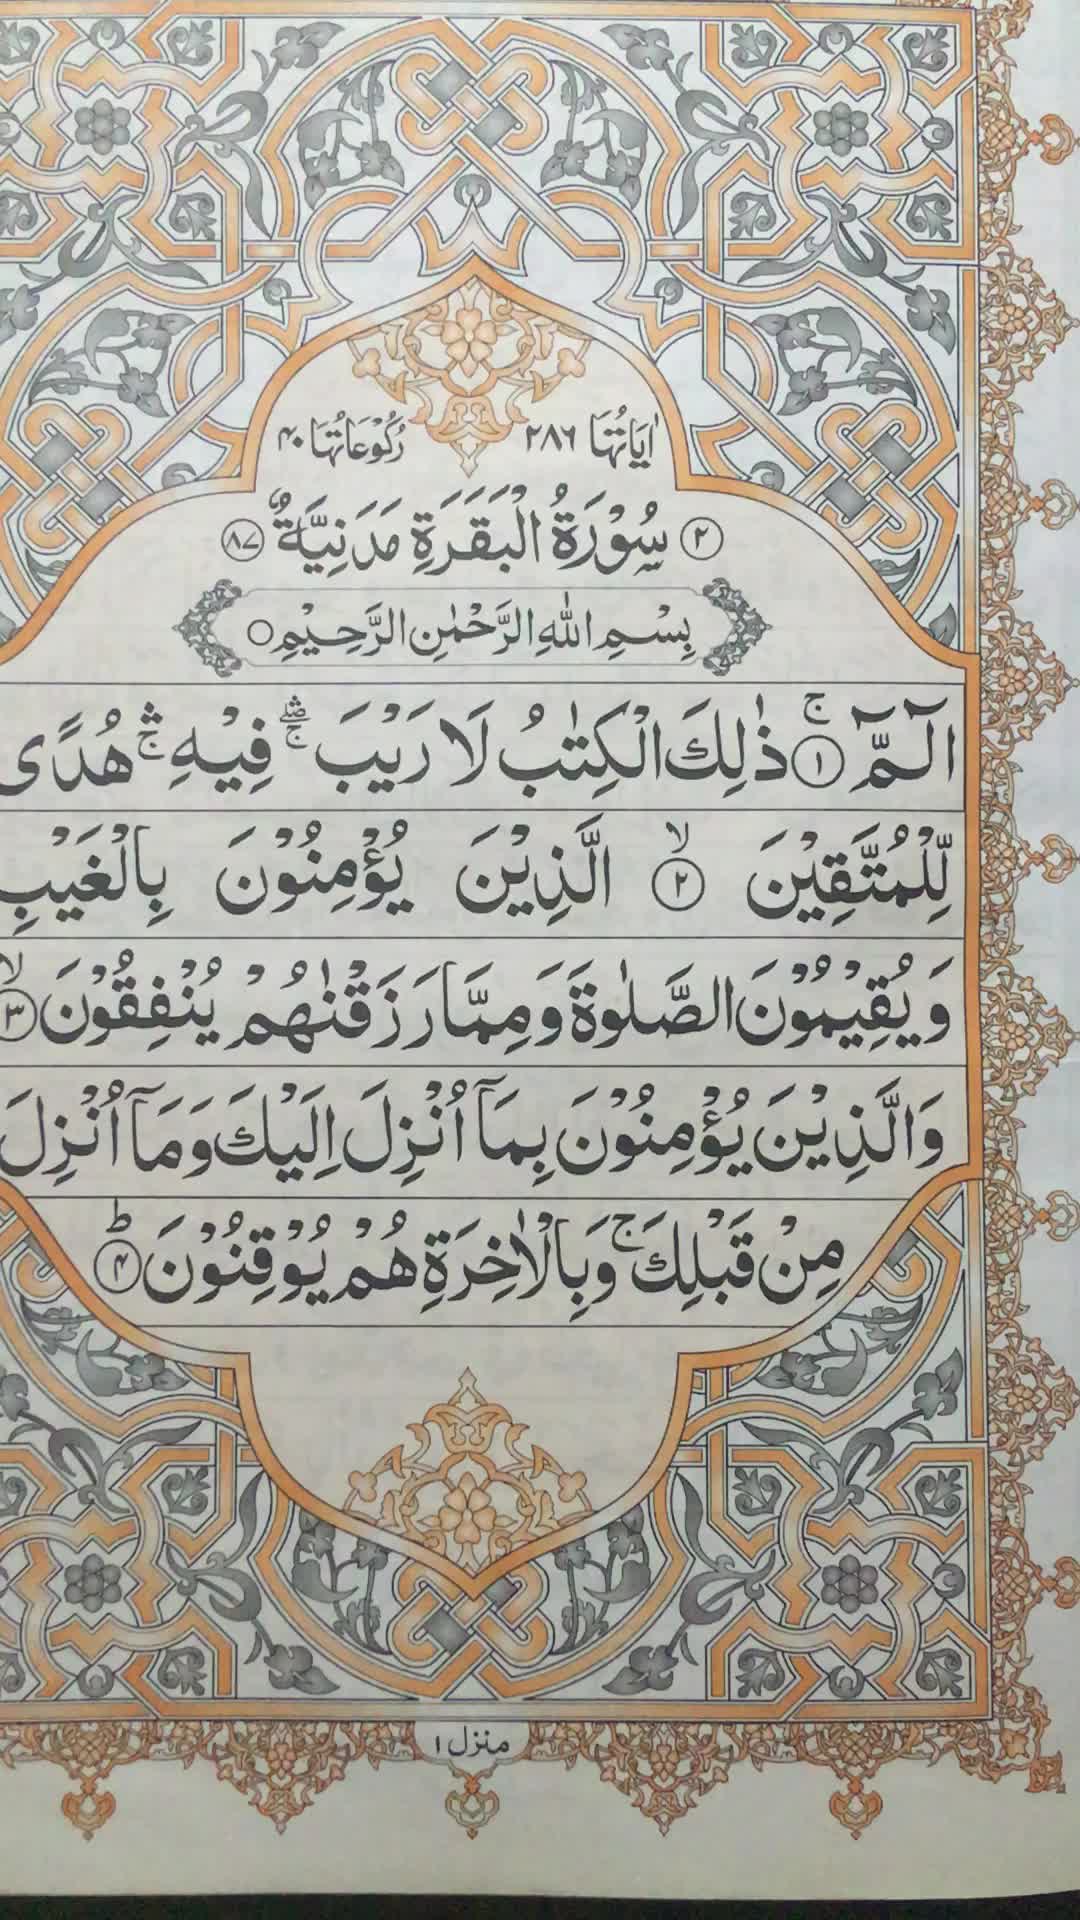 اٰیَاتُهَا ٢٨٦ رُكُوْعَاتُهَا ٤٠
٢ سُوْرَةُ الْبَقَرَةِ مَدَنِيَّةٌ ٨٧
بِسْمِ اللّٰهِ الرَّحْمٰنِ الرَّحِيْمِ ○
الٓمّٓ ۚ ١ ذٰلِكَ الْكِتٰبُ لَا رَيْبَ ۖۚ فِيْهِ ۛۚ هُدًى
لِّلْمُتَّقِيْنَ ۙ ٢ الَّذِيْنَ يُؤْمِنُوْنَ بِالْغَيْبِ
وَيُقِيْمُوْنَ الصَّلٰوةَ وَمِمَّا رَزَقْنٰهُمْ يُنْفِقُوْنَ ۙ ٣
وَالَّذِيْنَ يُؤْمِنُوْنَ بِمَآ اُنْزِلَ اِلَيْكَ وَمَآ اُنْزِلَ
مِنْ قَبْلِكَ ۚ وَبِالْاٰخِرَةِ هُمْ يُوْقِنُوْنَ ؕ ٤
منزل ١